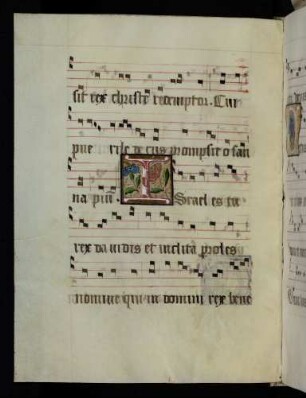 sit rex christe redemptor. Cui
pue rile de cus prompsit o san
na piũ Israel es tu
rex dauidis et inclita proles
nomine qui in domini rex bene